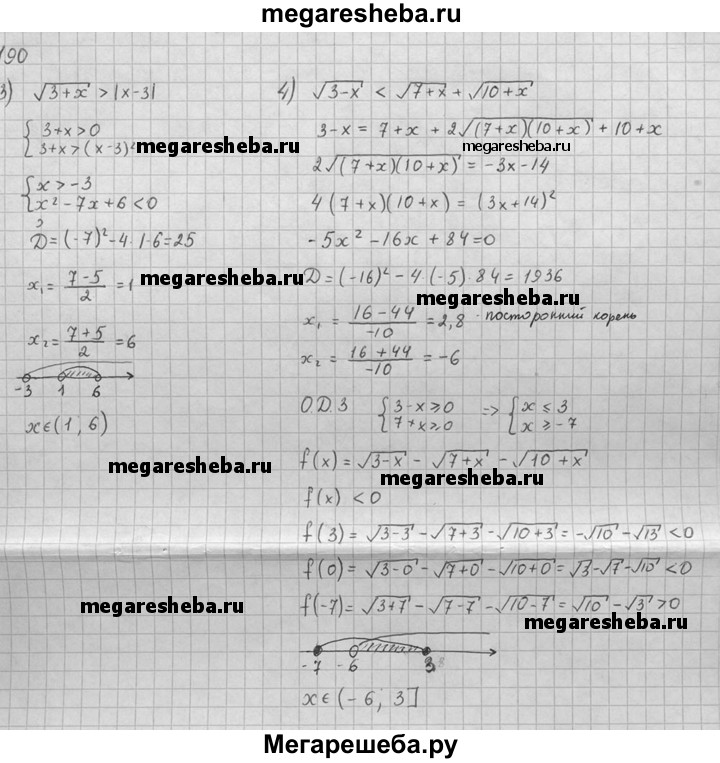 megaresheba.ru
190
3) √(3+x) > |x-3|
{ 3+x>0
{ 3+x>(x-3)²
megaresheba.ru
{ x>-3
{ x²-7x+6<0
D=(-7)²-4·1·6=25
x₁= (7-5)/2 =1
megaresheba.ru
x₂= (7+5)/2 =6
-3 1 6
x∈(1; 6)
megaresheba.ru
4) √(3-x) < √(7+x) + √(10+x)
3-x = 7+x + 2√((7+x)(10+x)) + 10+x
megaresheba.ru
2√((7+x)(10+x)) = -3x-14
4(7+x)(10+x) = (3x+14)²
-5x²-16x+84=0
D=(-16)²-4·(-5)·84=1936
megaresheba.ru
x₁ = (16-44)/-10 = 2,8 - посторонний корень
x₂ = (16+44)/-10 = -6
О.Д.З { 3-x≥0 => { x≤3
{ 7+x≥0 { x≥-7
f(x) = √(3-x) - √(7+x) - √(10+x)
megaresheba.ru
f(x) <0
f(3) = √(3-3) - √(7+3) - √(10+3) = -√10 - √13 <0
f(0) = √(3-0) - √(7+0) - √(10+0) = √3-√7-√10 <0
megaresheba.ru
f(-7) = √(3+7) - √(7-7) - √(10-7) = √10 - √3 >0
megaresheba.ru
-7 -6 3
x∈(-6; 3]
Мегарешеба.ру